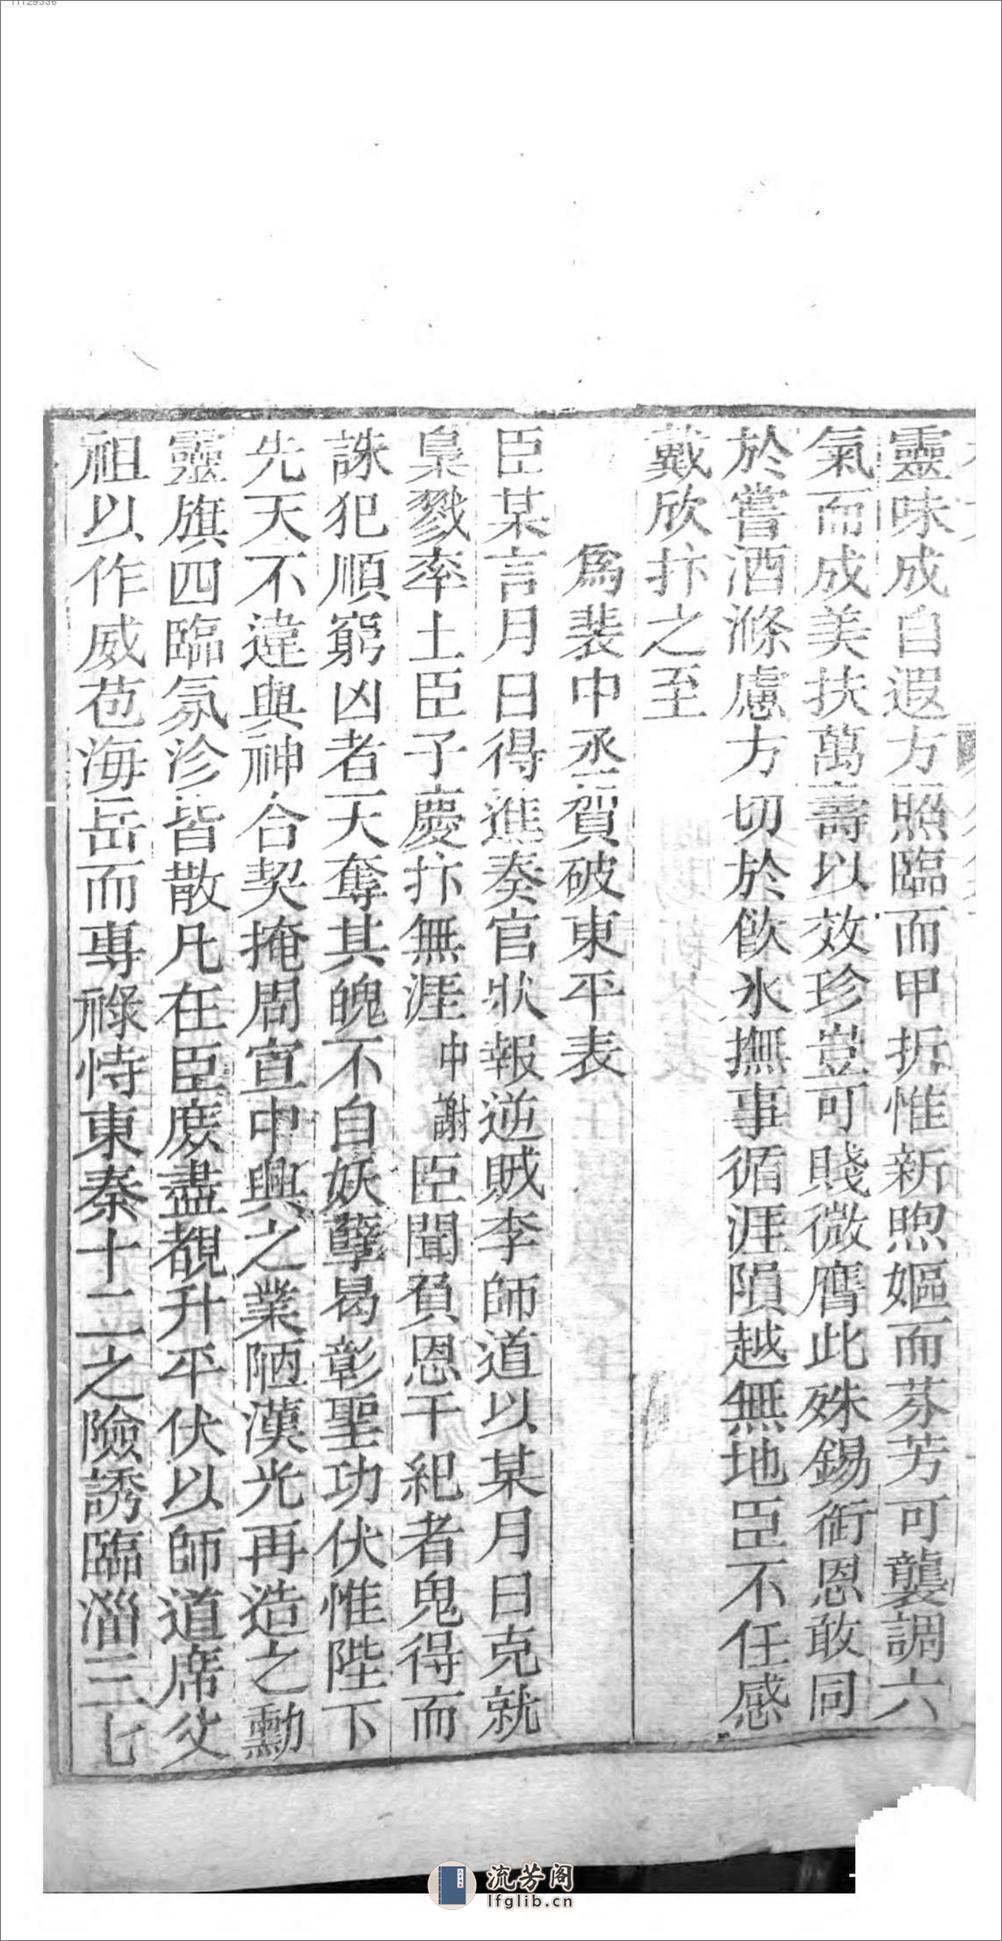 靈味成自遐方照臨而甲拆惟新煦嫗而芬芳可襲調六
氣而成美扶萬壽以效珍豈可賤微膺此殊錫銜恩敢同
於嘗酒滌慮方切於飲氷撫事循涯隕越無地臣不任感
戴欣抃之至
爲裴中丞賀破東平表
臣某言月日得進奏官狀報逆賊李師道以某月日克就
梟戮率土臣子慶抃無涯中謝臣聞負恩干紀者鬼得而
誅犯順窮凶者天奪其魄不自妖孽曷彰聖功伏惟陛下
先天不違與神合契掩周宣中興之業陋漢光再造之勳
靈旗四臨氛沴皆散凡在臣庶盡覩升平伏以師道席父
祖以作威苞海岳而專祿恃東秦十二之險誘臨淄三七
流芳阁
lfglib.cn